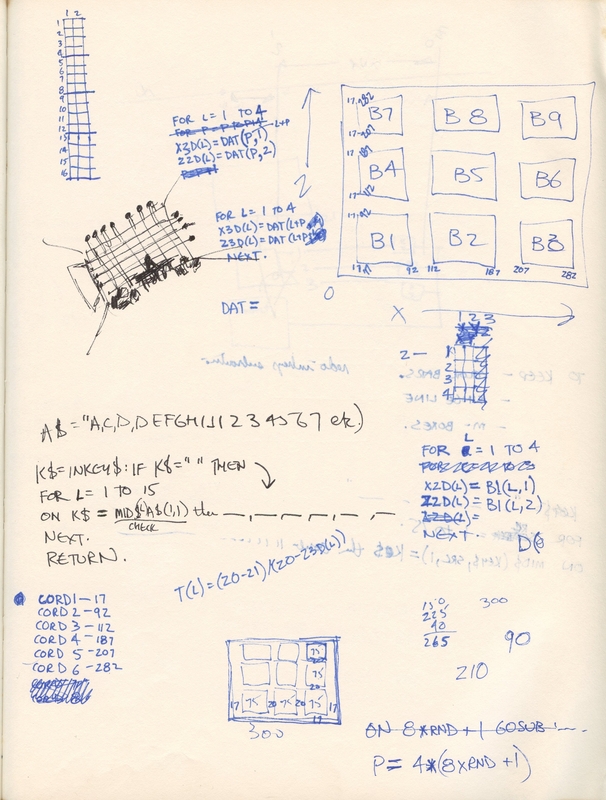 1 2
1
2
3
4
5
6
7
8
9
10
11
12
13
14
15
16
FOR L = 1 TO 4
L+P
X3D(L) = DAT(P,1)
Z2D(L) = DAT(P,2)
FOR L = 1 TO 4
X3D(L) = DAT(L+P
Z3D(L) = DAT(L+P
NEXT.
DAT =
Z
O
X
17,282
B7
B8
B9
17,207
17,187
B4
B5
B6
17,112
17,92
B1
B2
B3
17,17
92
112
187
207
282
1 2 3
2 —
1
2
3
4
A$ = "A,C,D,DEFGHIJ1234567 etc)
K$=INKEY$: IF K$=" " THEN
FOR L = 1 TO 15
ON K$ = MID$(A$(1,1) then
CHECK
NEXT.
RETURN.
L
FOR = 1 TO 4
X2D(L) = B1(L,1)
Z2D(L) = B1(L,2)
Z2D(L) =
NEXT.
T(L) = (20-21)/(20-23D(L))
CORD1 - 17
CORD 2 - 92
CORD 3 - 112
CORD 4 - 187
CORD 5 - 207
CORD 6 - 282
150
225
40
265
300
90
210
75
75
20
17 75 20 75 20 75 17
17
300
ON 8*RND+1 GOSUB
P = 4*(8*RND+1)